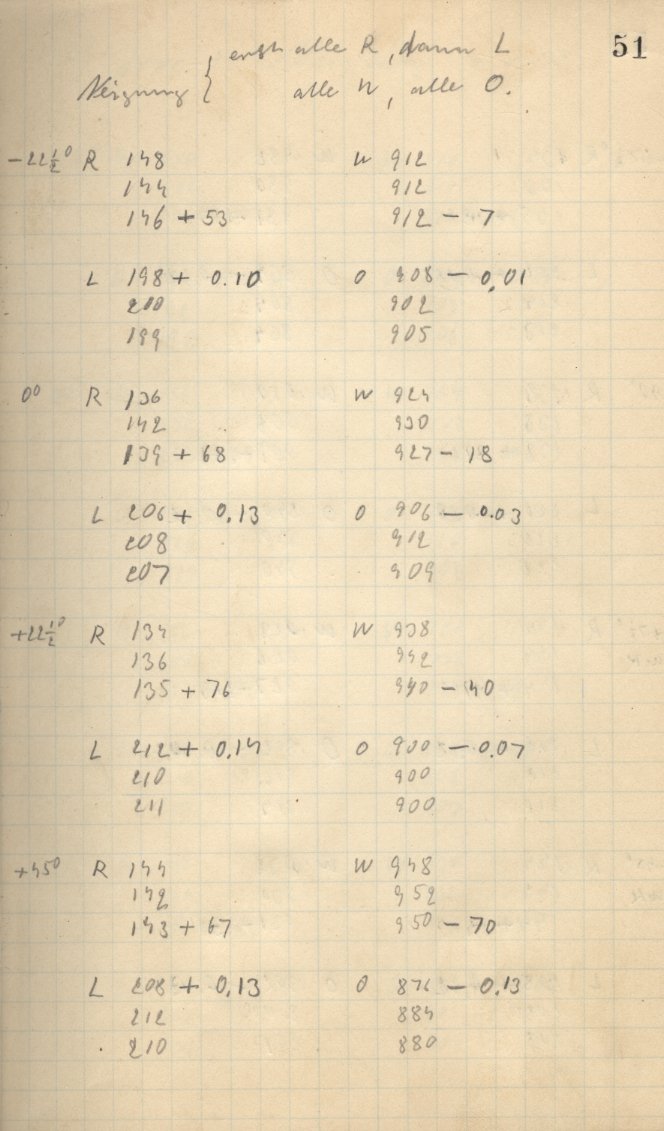 51
erst alle R, dann L
Neigung { alle W, alle O.
-22½° R 148 W 912
144 912
146 + 53 912 - 7
L 198 + 0.10 O 908 - 0,01
200 902
199 905
0° R 136 W 924
142 930
139 + 68 927 - 18
L 206 + 0,13 O 906 - 0.03
208 912
207 909
+22½° R 134 W 938
136 942
135 + 76 940 - 40
L 212 + 0,14 O 900 - 0.07
210 900
211 900
+45° R 144 W 948
142 952
143 + 67 950 - 70
L 208 + 0,13 O 876 - 0,13
212 884
210 880